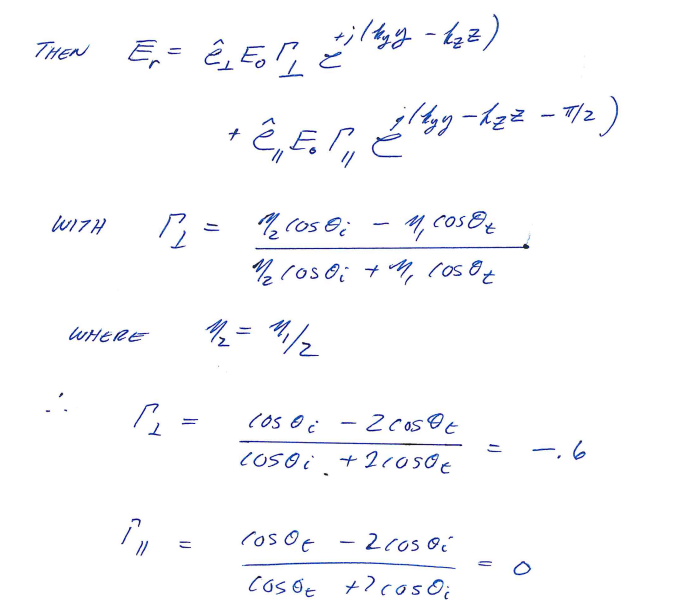 THEN E̅r = ê⊥ E₀ Γ⊥ e^{+j(kyy - kzz)}
+ ê∥ E₀ Γ∥ e^{j(kyy - kzz - π/2)}
WITH Γ⊥ = (η₂ cosθi - η₁ cosθt) / (η₂ cosθi + η₁ cosθt)
WHERE η₂ = η₁/2
∴ Γ⊥ = (cosθi - 2cosθt) / (cosθi + 2cosθt) = -.6
Γ∥ = (cosθt - 2cosθi) / (cosθt + 2cosθi) = 0